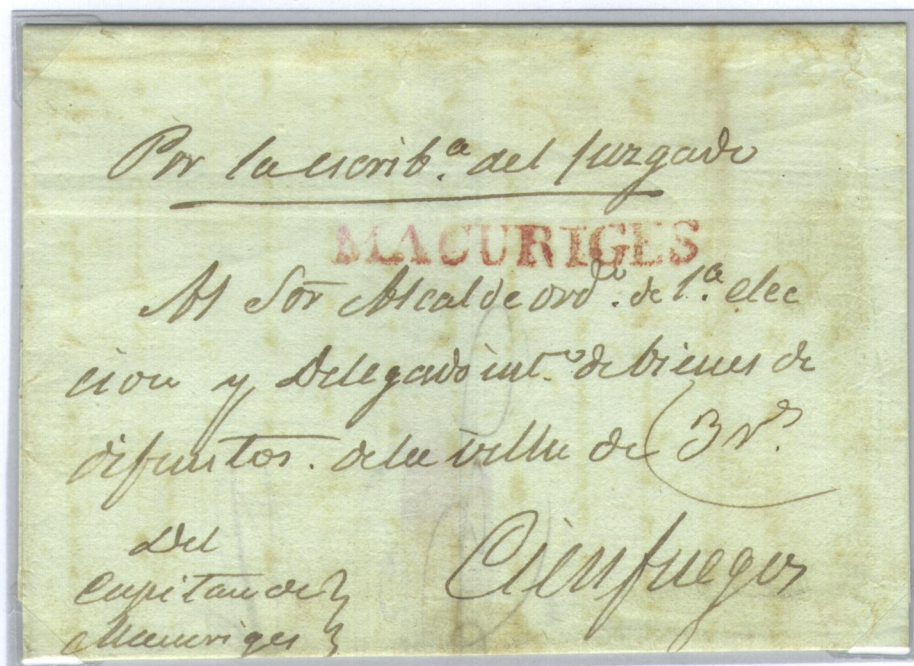 Por la escrib.ª del Juzgado
MACURIGES
Al Sor Alcalde ord.º de 1.ª elec
cion y Delegado int.º de bienes de
difuntos. de la villa de 3 r.s
Cienfuegos
Del
Capitan de
Macuriges